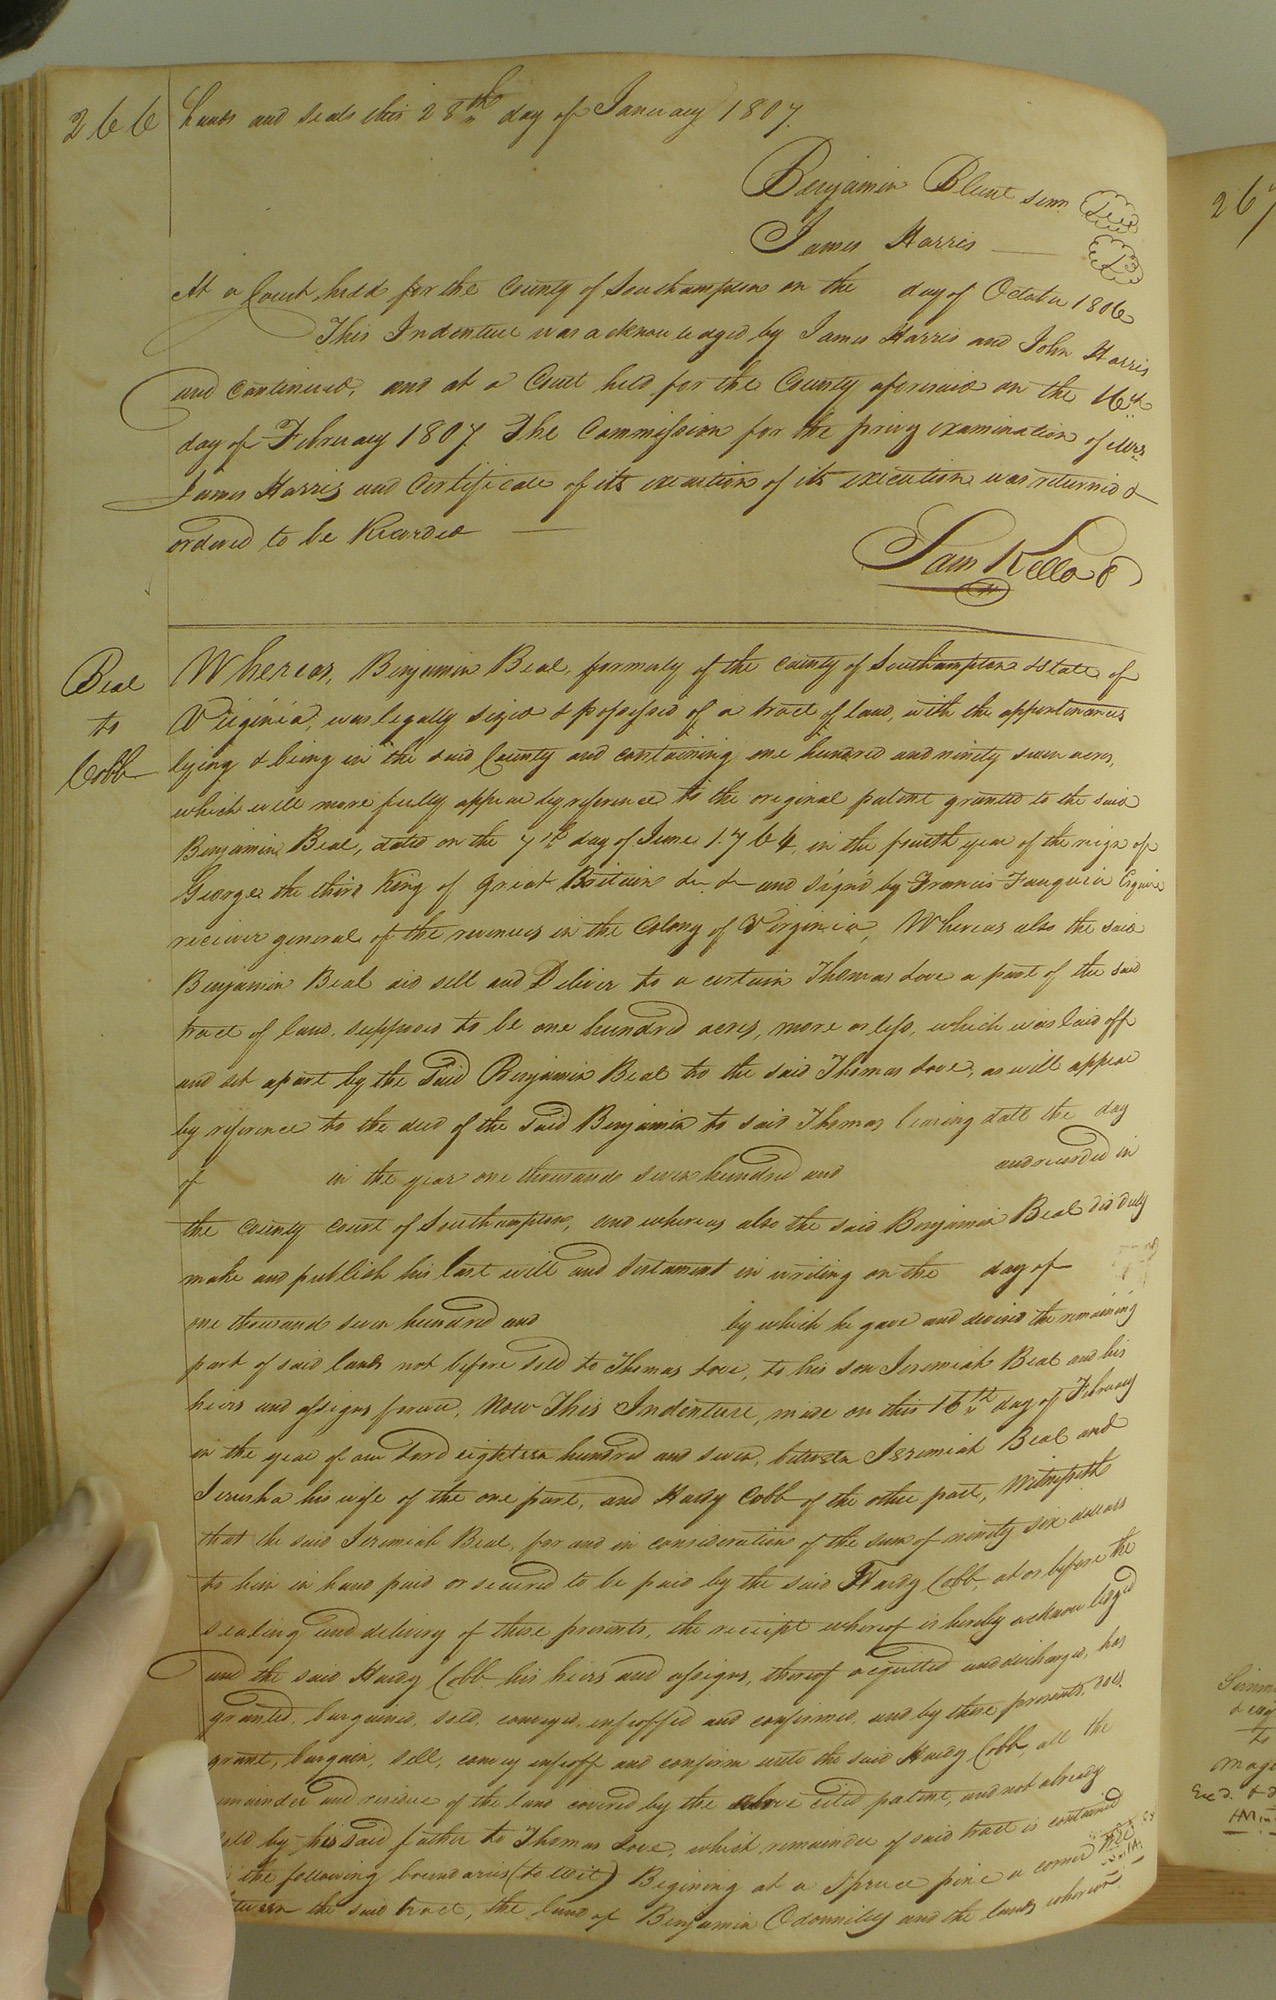 266
hands and seals this 28th day of January 1807.
Benjamin Blunt senr. Seal
James Harris Ls
At a Court held for the County of Southampton on the day of October 1806
This Indenture was acknowledged by James Harris and John Harris
and continued, and at a Court held for the County aforesaid on the 16th
day of February 1807 The Commission for the privy examination of Mrs
James Harris and Certificate of its execution of its execution was returned &
ordered to be Recorded
Sam Kello C
Beal
to
Cobb
Whereas, Benjamin Beal, formerly of the County of Southampton & State of
Virginia, was legally siezed & possessed of a tract of land, with the appurtenances
lying & being in the said County and containing one hundred and ninety seven acres,
which will more fully appear by reference to the original patent granted to the said
Benjamin Beal, dated on the 7th day of June 1764, in the fourth year of the reign of
George the third King of Great Britain &c &c and sign'd by Francis Fauquier Esquire
receiver general of the revenues in the Colony of Virginia, Whereas also the said
Benjamin Beal did sell and Deliver to a certain Thomas Love a part of the said
tract of land, supposed to be one hundred acres, more or less, which was laid off
and set apart by the said Benjamin Beal to the said Thomas Love, as will appear
by reference to the deed of the said Benjamin to said Thomas bearing date the day
of in the year one thousand seven hundred and and recorded in
the County Court of Southampton, and whereas also the said Benjamin Beal did duly
make and publish his last will and testament in writing on the day of
one thousand seven hundred and by which he gave and devised the remaining
part of said lands not before sold to Thomas Love, to his son Jeremiah Beal and his
heirs and assigns forever, Now This Indenture, made on this 16th day of February
in the year of our Lord eighteen hundred and seven, between Jeremiah Beal and
Jerusha his wife of the one part, and Hardy Cobb of the other part, Witnesseth
that the said Jeremiah Beal, for and in consideration of the sum of ninety six dollars
to him in hand paid or secured to be paid by the said Hardy Cobb, at or before the
sealing and delivery of these presents, the receipt whereof is hereby acknowledged
and the said Hardy Cobb his heirs and assigns, thereof acquitted and discharged, has
granted, bargained, sold, conveyed, infeoffed and confirmed, and by these presents, does
grant, bargain, sell, convey infeoff and confirm unto the said Hardy Cobb, all the
remainder and residue of the land covered by the above cited patent, and not already
sold by his said father to Thomas Love, which remainder of said tract is contained
the following boundaries (to wit) Begining at a Spruce pine a corner tree
between the said tract, the land of Benjamin Odonnilly and the lands whereon
267
to